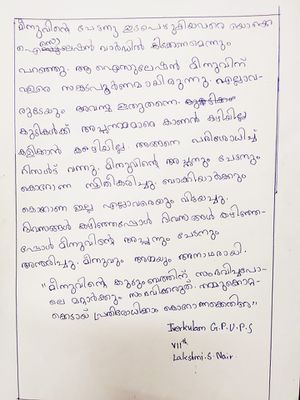 മീനുവിന്റെ ചേട്ടനും ഇടപെഴുകിയവരെ യൊക്കെ
ഐസൊലേഷൻ വാർഡിൽ കിടക്കണമെന്നും
പറഞ്ഞു. ആ ഐസൊലേഷൻ മീനുവിന്
വളരെ സങ്കടപൂർണമായിരുന്നു. എല്ലാവ-
രുടേയും അവസ്ഥ ഇതുതന്നെ.
കുട്ടികൾക്ക് അച്ഛനമ്മമാരെ കാണാൻ കഴിയില്ല
കളിക്കാൻ കഴിയില്ല. അങ്ങനെ പരിശോധിച്ച്
റിസൾട്ട് വന്നു. മീനുവിന്റെ അച്ഛനും ചേട്ടനും
കൊറോണ സ്ഥിതീകരിച്ചു ബാക്കിയാർക്കും
കൊറോണ ഇല്ല എല്ലാവരെയും വിട്ടയച്ചു.
ദിവസങ്ങൾ കഴിഞ്ഞപ്പോൾ ദിവസങ്ങൾ കഴിഞ്ഞ-
പ്പോൾ മീനുവിന്റെ അച്ഛനും ചേട്ടനും
അന്തരിച്ചു. മീനുവും അമ്മയും അനാഥരായി.
"മീനുവിന്റെ കുടുംബത്തിന് സംഭവിച്ചപോ-
ലെ മറ്റാർക്കും സംഭവിക്കരുത്. നമുക്കൊറ്റ-
ക്കെട്ടായ് പ്രതിരോധിക്കാം കൊറോണക്കെതിരെ"
Tserkulam G.P.U.P.S
VII th
Lakshmi.S.Nair